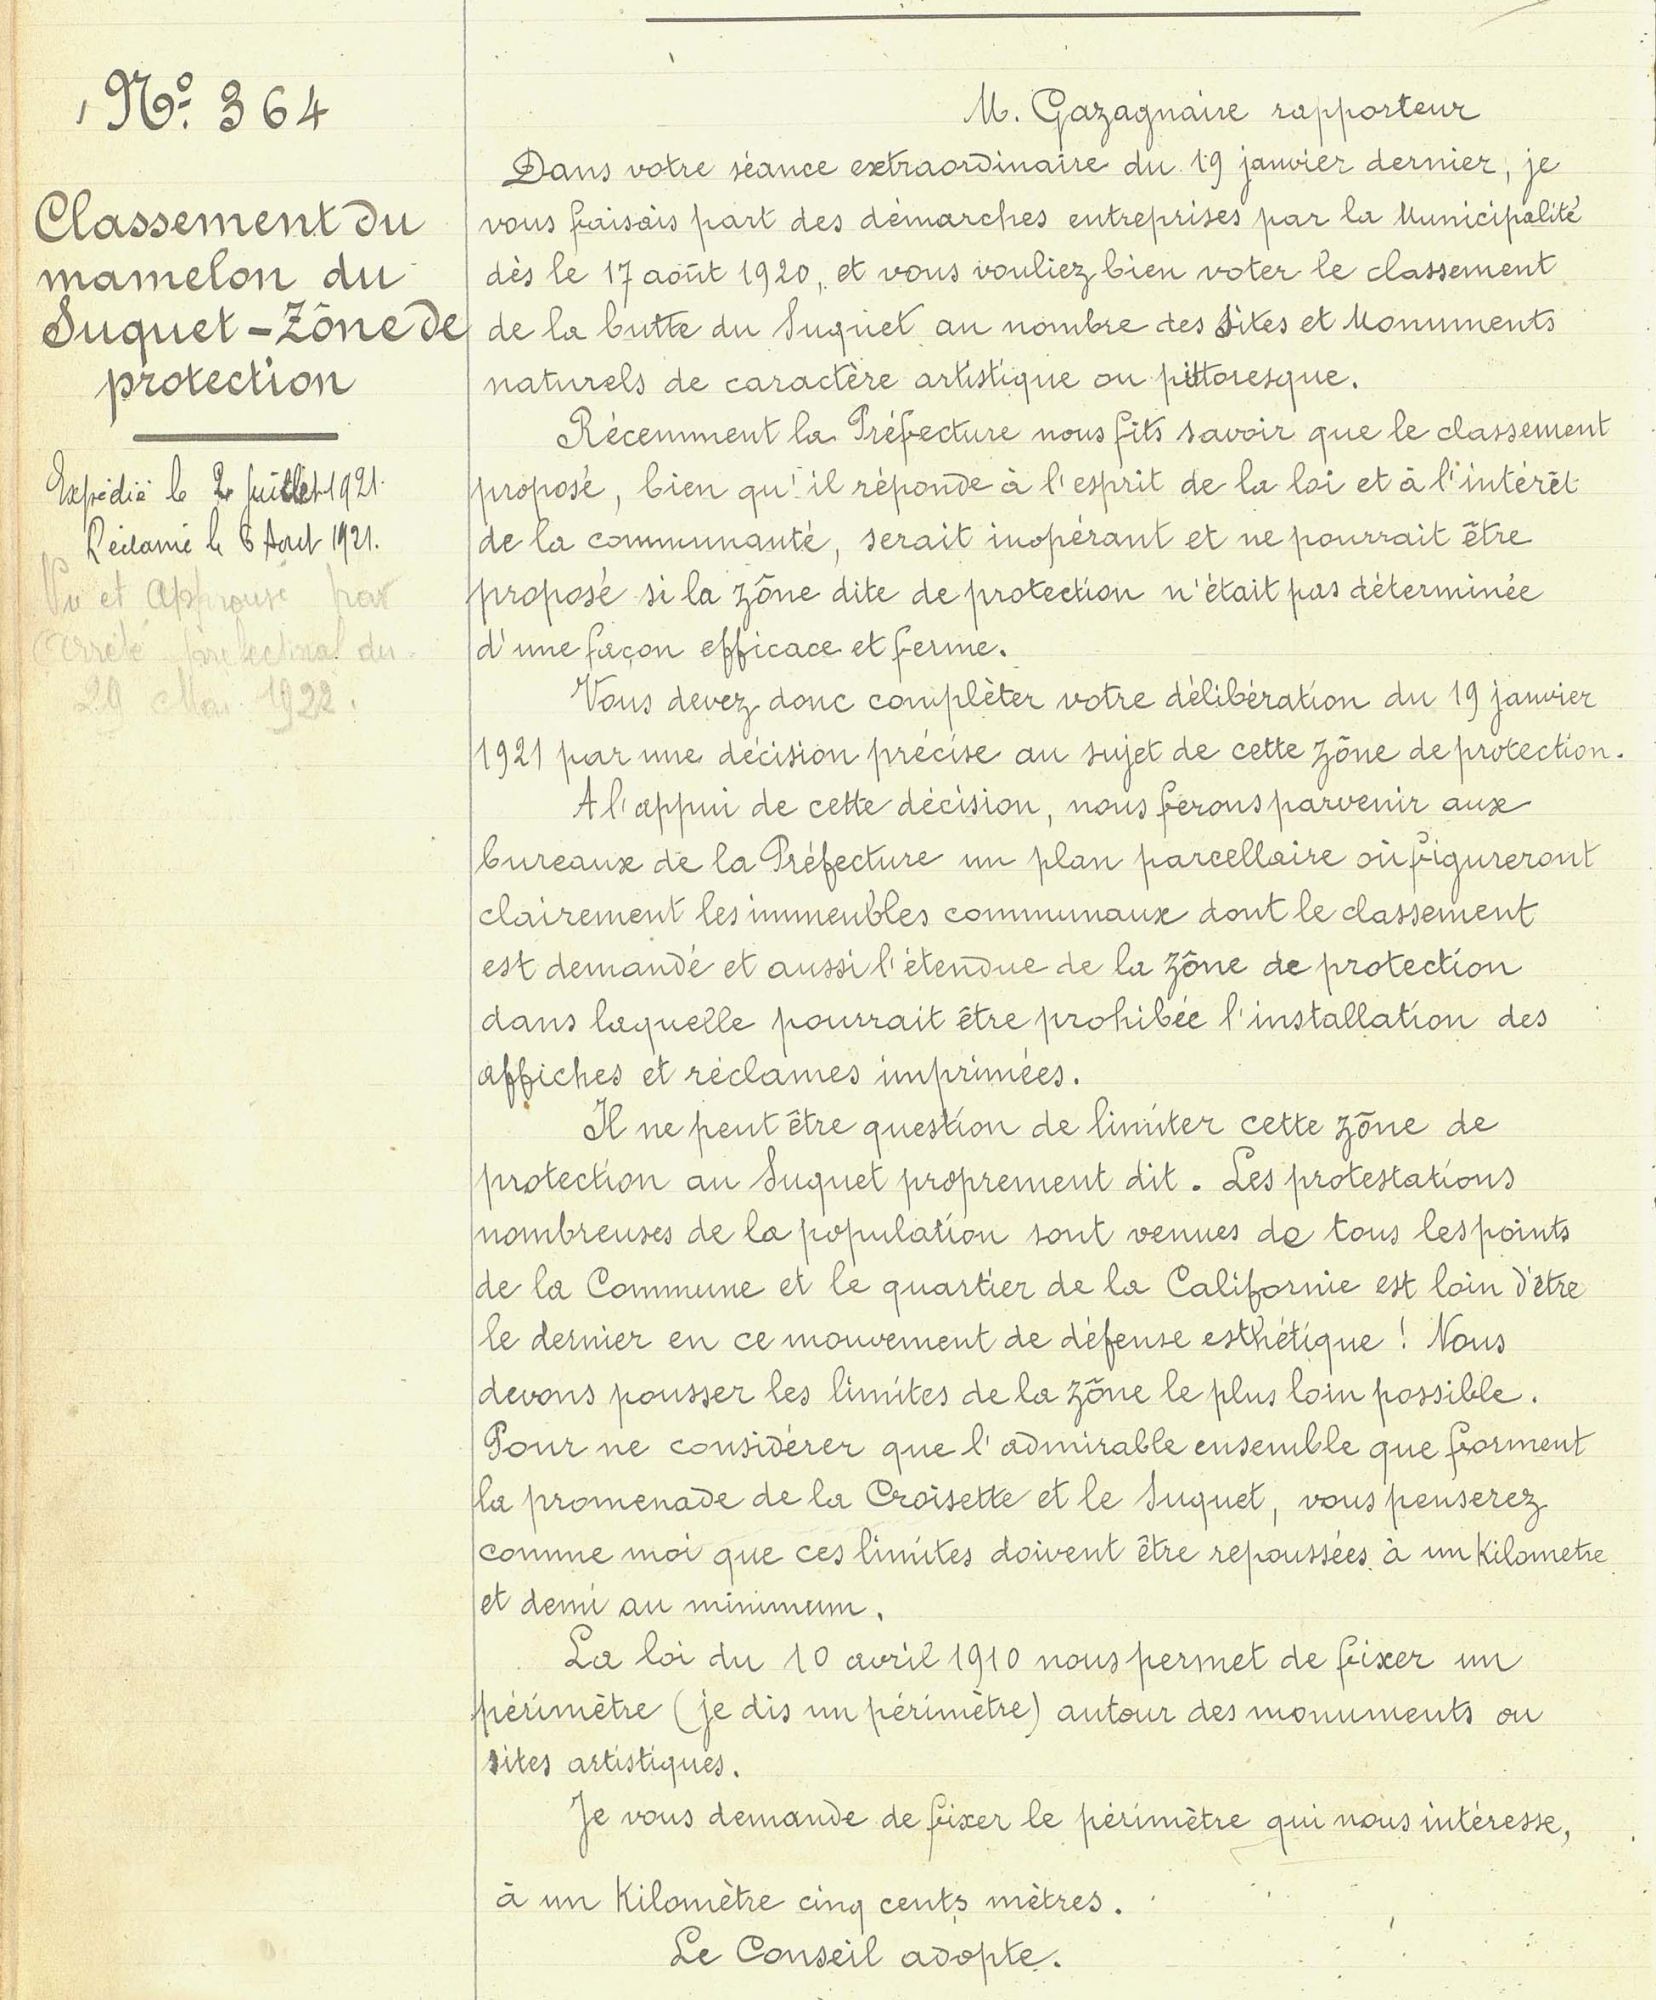 N° 364
Classement du
mamelon du
Suquet - Zône de
protection
Expédié le 2 Juillet 1921.
Réclamé le 6 Aout 1921.
Vu et Approuvé par
arrêté préfectoral du
29 Mai 1922.
M. Gazagnaire rapporteur
Dans votre séance extraordinaire du 19 janvier dernier, je
vous faisais part des démarches entreprises par la Municipalité
dès le 17 août 1920, et vous vouliez bien voter le classement
de la butte du Suquet au nombre des Sites et Monuments
naturels de caractère artistique ou pittoresque.
Récemment la Préfecture nous fits savoir que le classement
proposé, bien qu'il réponde à l'esprit de la loi et à l'intérêt
de la communauté, serait inopérant et ne pourrait être
proposé si la zône dite de protection n'était pas déterminée
d'une façon efficace et ferme.
Vous devez donc complèter votre délibération du 19 janvier
1921 par une décision précise au sujet de cette zône de protection.
A l'appui de cette décision, nous ferons parvenir aux
bureaux de la Préfecture un plan parcellaire où figureront
clairement les immeubles communaux dont le classement
est demandé et aussi l'étendue de la zône de protection
dans laquelle pourrait être prohibée l'installation des
affiches et réclames imprimées.
Il ne peut être question de limiter cette zône de
protection au Suquet proprement dit. Les protestations
nombreuses de la population sont venues de tous les points
de la Commune et le quartier de la Californie est loin d'être
le dernier en ce mouvement de défense esthétique ! Nous
devons pousser les limites de la zône le plus loin possible.
Pour ne considérer que l'admirable ensemble que forment
la promenade de la Croisette et le Suquet, vous penserez
comme moi que ces limites doivent être repoussées à un kilometre
et demi au minimum.
La loi du 10 avril 1910 nous permet de fixer un
périmètre (je dis un périmètre) autour des monuments ou
sites artistiques.
Je vous demande de fixer le périmètre qui nous intéresse,
à un Kilomètre cinq cents mètres.
Le Conseil adopte.